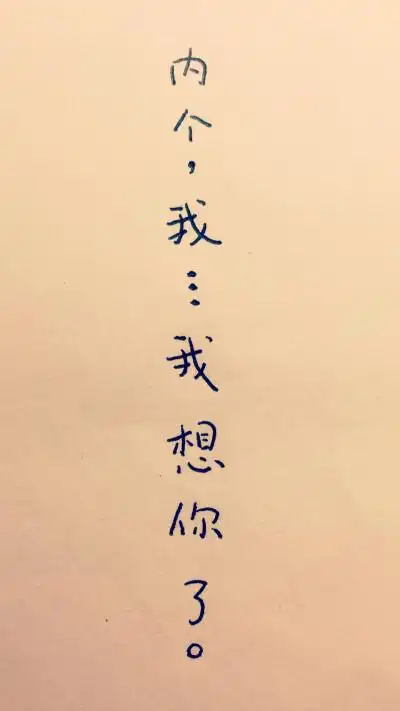 内个，我…我想你了。